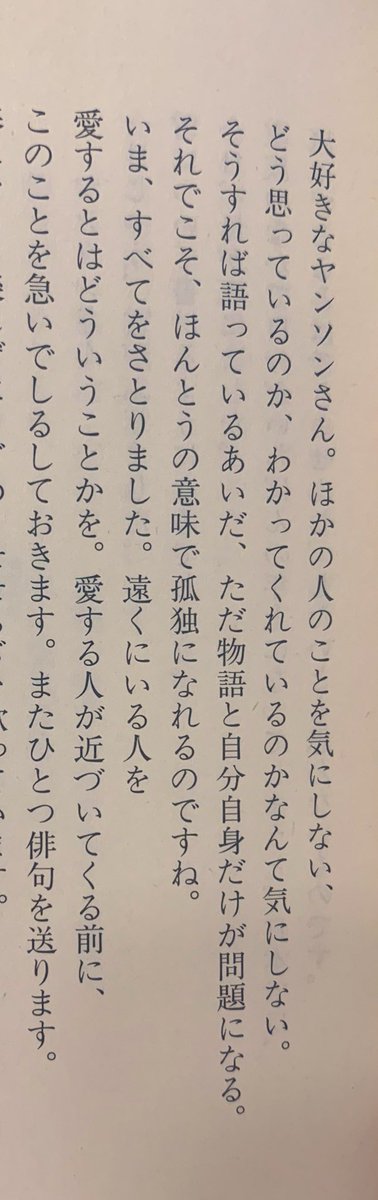 大好きなヤンソンさん。ほかの人のことを気にしない、
どう思っているのか、わかってくれているのかなんて気にしない。
そうすれば語っているあいだ、ただ物語と自分自身だけが問題になる。
それでこそ、ほんとうの意味で孤独になれるのですね。
いま、すべてをさとりました。遠くにいる人を
愛するとはどういうことかを。愛する人が近づいてくる前に、
このことを急いでしるしておきます。またひとつ俳句を送ります。